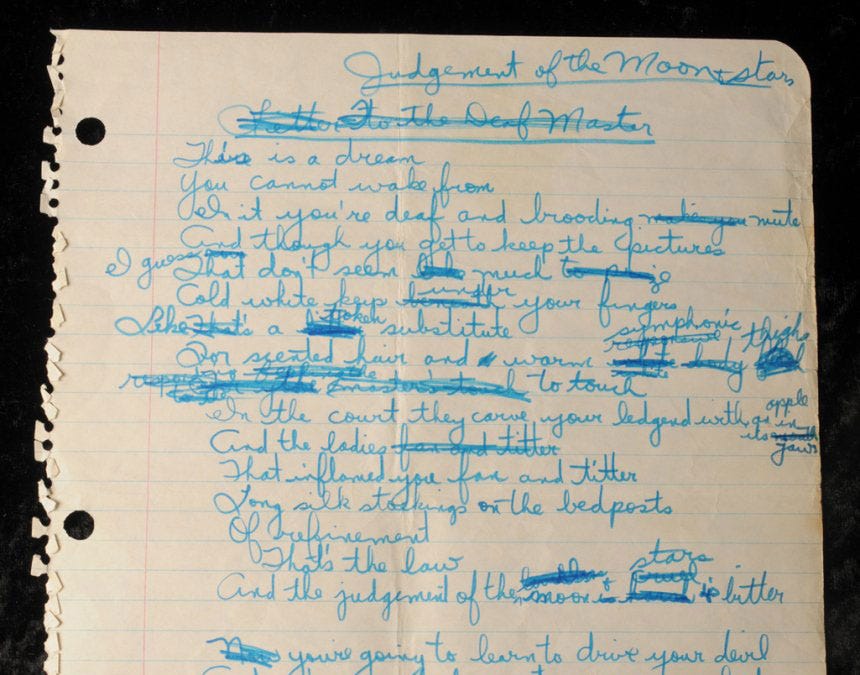 Judgement of the Moon + stars
to the Deaf Master
This is a dream
You cannot wake from
In it you're deaf and brooding make you mute
And though you get to keep the pictures
I guess That don't seem much to
Cold white keys under your fingers
Like That's a token substitute
symphonic thighs
responsive
For scented hair and warm body
the master's touch to touch
In the court they carve your ledgend with an apple in its jaws
And the ladies fan and titter
That inflamed you fan and titter
Long silk stockings on the bedposts
Of refinement
That's the law
stars
And the judgement of the moon + is bitter
Now you're going to learn to drive your devil